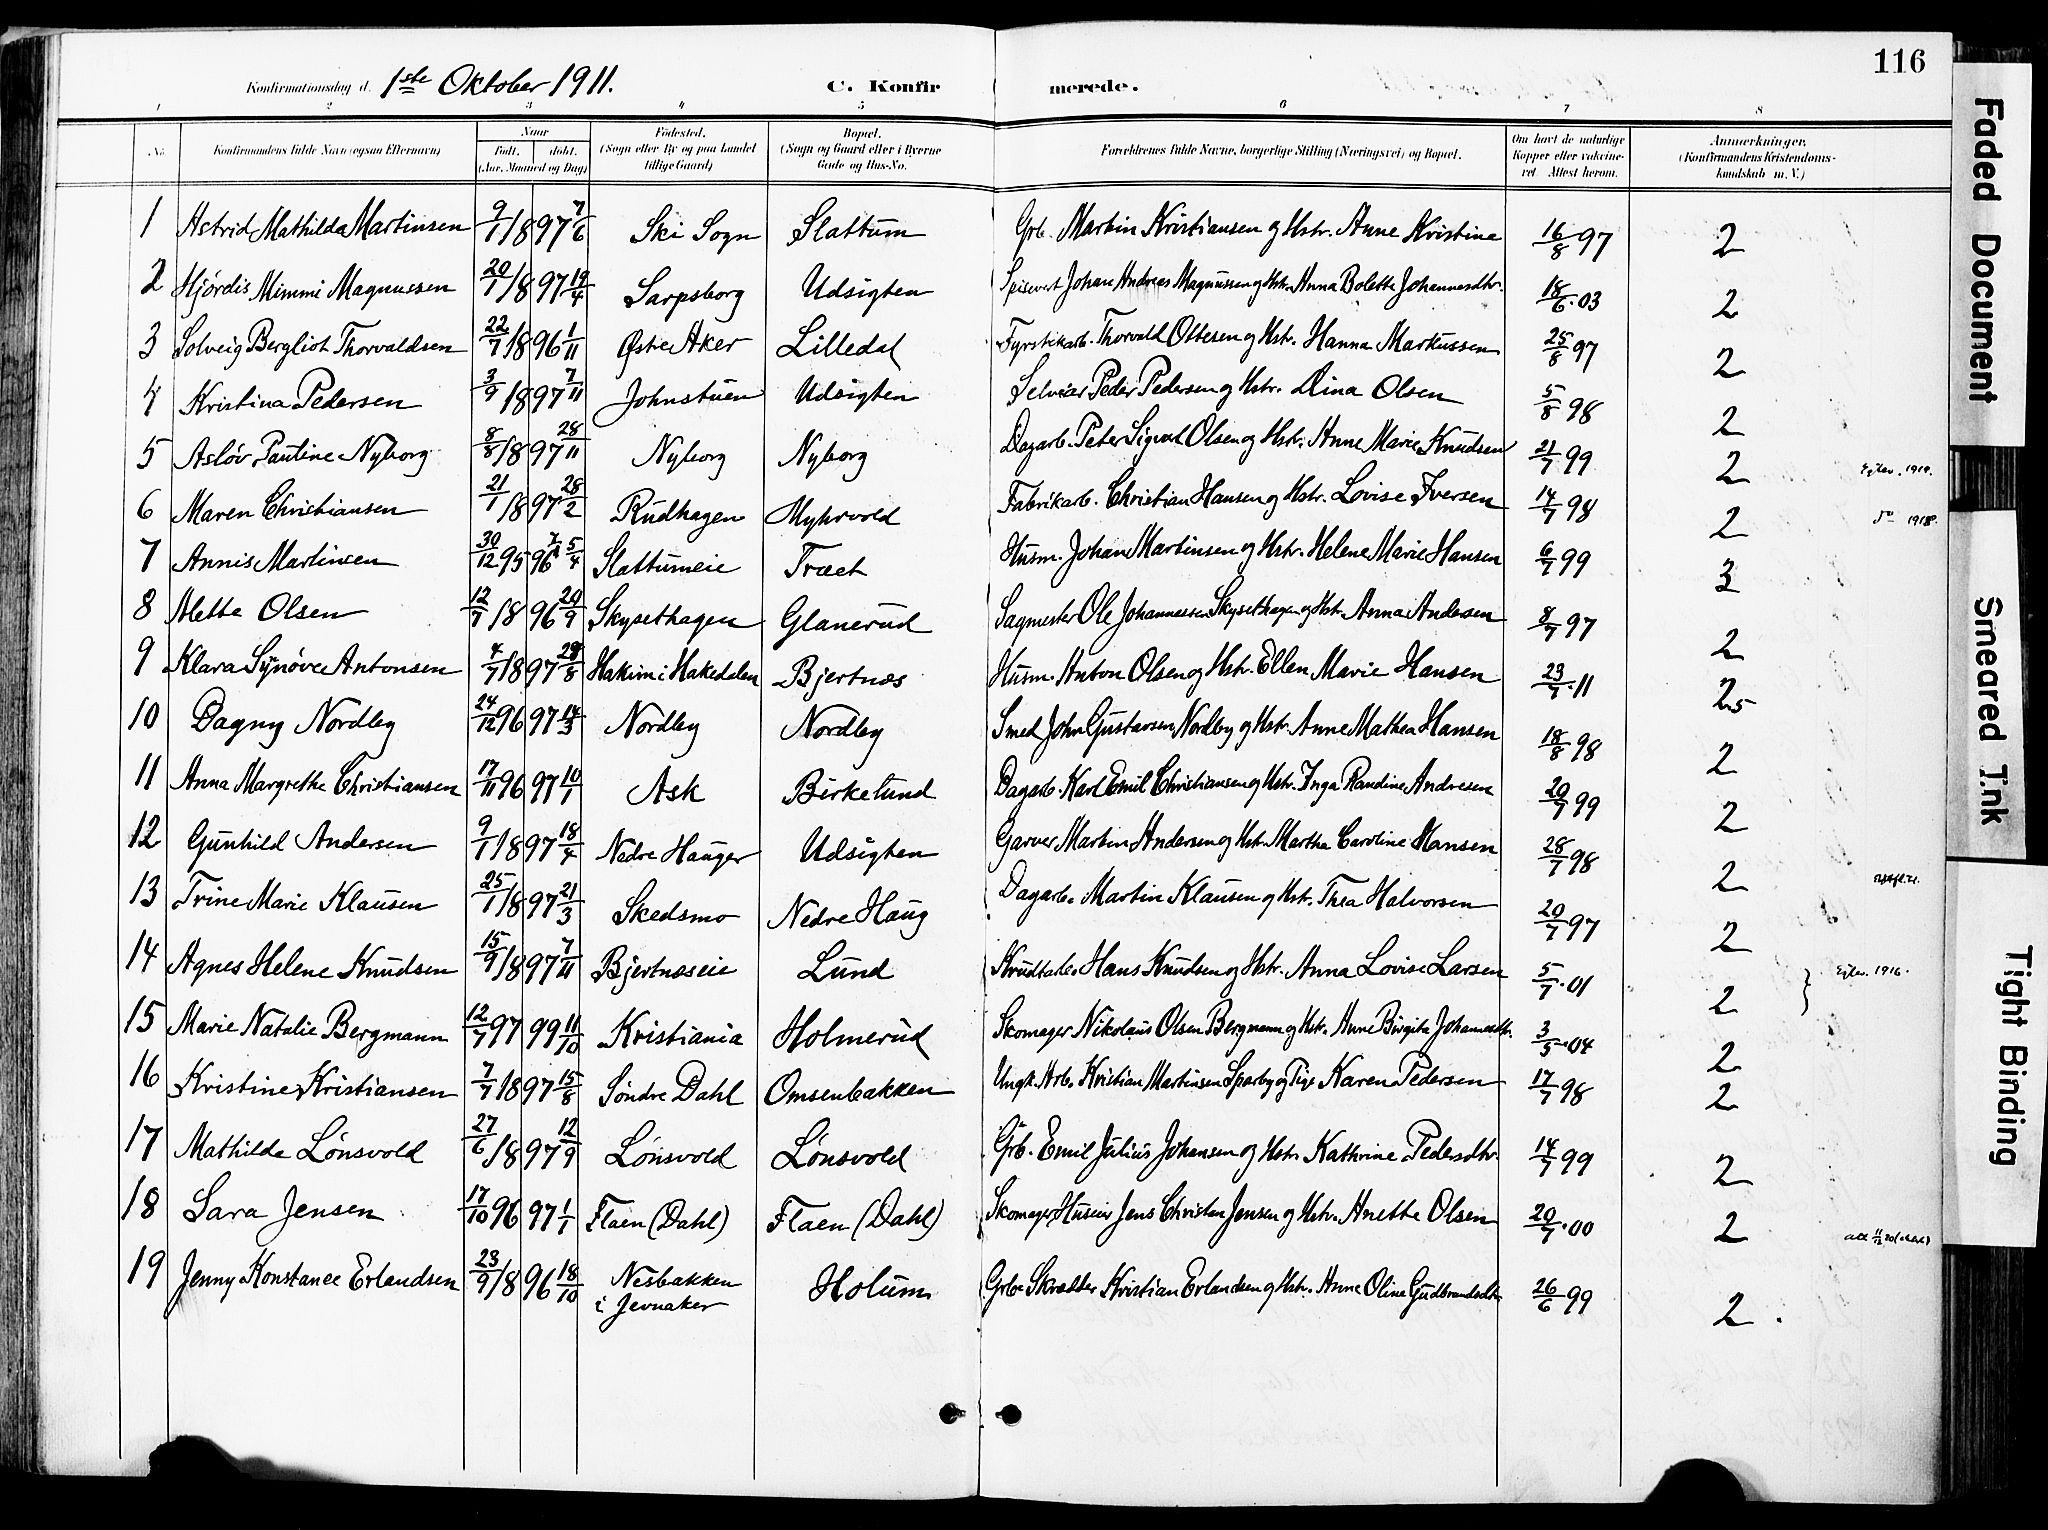 116
Konfirmationsdag d. 1ste Oktober 1911. C. Konfirmerede.
1 2 3 4 5 6 7 8
No. Konfirmandens fulde Navn (ogsaa Efternavn) Naar Født. døbt. (Aar, Maaned og Dag) Fødested. (Sogn eller By og paa Landet tillige Gaard) Bopæl. (Sogn og Gaard eller i Byerne Gade og Hus-No. Forældrenes fulde Navne, borgerlige Stilling (Næringsvei) og Bopæl. Om havt de naturlige Kopper eller vaccineret. Attest herom. Anmerkninger. (Konfirmandens Kristendomskundskab m. V.)
1 Astrid Mathilda Martinsen 9/1 1897 7/6 Ski Sogn Slattum Grb. Martin Kristiansen og Hstr. Anne Kristine 16/8 97 2
2 Hjørdis Mimmi Magnussen 20/1 1897 19/4 Sarpsborg Udsigten Spisevert Johan Andreas Magnussen og Hstr. Anna Bolette Johannesdtr. 18/6.03 2
3 Solveig Bergliot Thorvaldsen 22/7 1896 1/11 Østre Aker Lilledal Fyrstikarb. Thorvald Ottesen og Hstr. Hanna Markussen 25/8 97 2
4 Kristina Pedersen 3/9 1897 7/11 Johnstuen Udsigten Selveier Peder Pedersen og Hstr. Dina Olsen 5/8 98 2
5 Asløv Pauline Nyborg 8/8 1897 28/11 Nyborg Nyborg Dagarb. Peter Sigvart Olsen og Hstr. Anne Marie Knudsen 21/7 99 2
6 Maren Christiansen 21/1 1897 28/2 Rudhagen Myhrvold Fabrikarb. Christian Hansen og Hstr. Lovise Iversen 14/7 98 2 do 1918.
7 Annis Martinsen 30/12 95 96 5/4 Slattumeie Træet Husm. Johan Martinsen og Hstr. Helene Marie Hansen 6/7 99 3
8 Alette Olsen 12/7 1896 20/9 Skysethagen Glanerud Sagmester Ole Johannessen Skysethagen og Hstr. Anna Andersen 8/7 97 2
9 Klara Synøve Antonsen 4/7 1897 29/8 Hakim i Hakedalen Bjertnæs Husm. Anton Olsen og Hstr. Ellen Marie Hansen 23/7.11 2.5
10 Dagny Nordby 24/12 96 97 14/3 Nordby Nordby Smed John Gustavsen Nordby og Hstr. Anne Mathea Hansen 18/8 98 2
11 Anna Margrethe Christiansen 17/11 96 97 10/1 Ask Birkelund Dagarb. Karl Emil Christiansen og Hstr. Inga Randine Andresen 20/7 99 2
12 Gunhild Andersen 9/1 1897 18/4 Nedre Hauger Udsigten Garver Martin Andersen og Hstr. Martha Caroline Hansen 28/7 98 2
13 Trine Marie Klausen 25/1 1897 21/3 Skedsmo Nedre Haug Dagarb. Martin Klausen og Hstr. Thea Halvorsen 20/7 97 2
14 Agnes Helene Knudsen 15/9 1897 7/11 Bjertnæseie Lund Krudtarb. Hans Knudsen og Hstr. Anna Lovise Larsen 5/7.01 2 1916.
15 Marie Natalie Bergmann 12/7 97 99 11/10 Kristiania Holmerud Skomager Nikolaus Olsen Bergmann og Hstr. Anne Birgita Johannesdtr. 3/5.04 2
16 Kristine Kristiansen 7/7 1897 15/8 Søndre Dahl Omsenbakken Ungk. Arb. Kristian Martinsen Sparby og Pige Karen Pedersen 17/7 98 2
17 Mathilde Lønsvold 27/6 1897 12/9 Lønsvold Lønsvold Grb. Emil Julius Johansen og Hstr. Kathrine Pedersdtr. 14/7 99 2
18 Sara Jensen 17/10 96 97 1/1 Flaen (Dahl) Flaen (Dahl) Skomager, Huseier Jens Christian Jensen og Hstr. Anette Olsen 20/7.00 2
19 Jenny Konstance Erlandsen 23/9 1896 18/10 Nesbakken i Jevnaker Holum Grbr. Skrædder Kristian Erlandsen og Hstr. Anne Oline Gudbrandsdtr. 26/6 99 2.
Faded Document
Smeared Ink
Tight Binding